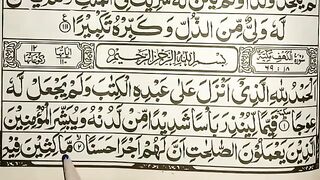 لَهٗ وَلِيٌّ مِّنَ الذُّلِّ وَكَبِّرْهُ تَكْبِيْرًا ۝۱۱۱
بِسْمِ اللّٰهِ الرَّحْمٰنِ الرَّحِيْمِ
اَلْحَمْدُ لِلّٰهِ الَّذِيْٓ اَنْزَلَ عَلٰى عَبْدِهِ الْكِتٰبَ وَلَمْ يَجْعَلْ لَّهٗ
عِوَجًا ۝۱ قَيِّمًا لِّيُنْذِرَ بَاْسًا شَدِيْدًا مِّنْ لَّدُنْهُ وَيُبَشِّرَ الْمُؤْمِنِيْنَ
الَّذِيْنَ يَعْمَلُوْنَ الصّٰلِحٰتِ اَنَّ لَهُمْ اَجْرًا حَسَنًا ۝۲ مَّاكِثِيْنَ فِيْهِ